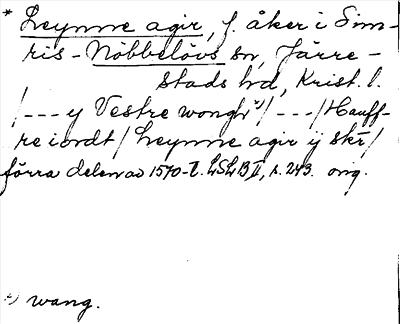 * Leynne agir, f. åker i Sim-
ris-Nöbbelövs sn, Järre-
stads hd, Krist. l.
/--- y Vestre wongh ¹)/ ---/ Hauff-
re iordt/ Leynne agir ij skr/
förra delen av 1570-t. LSLB II, s. 243. orig.
¹) wang.